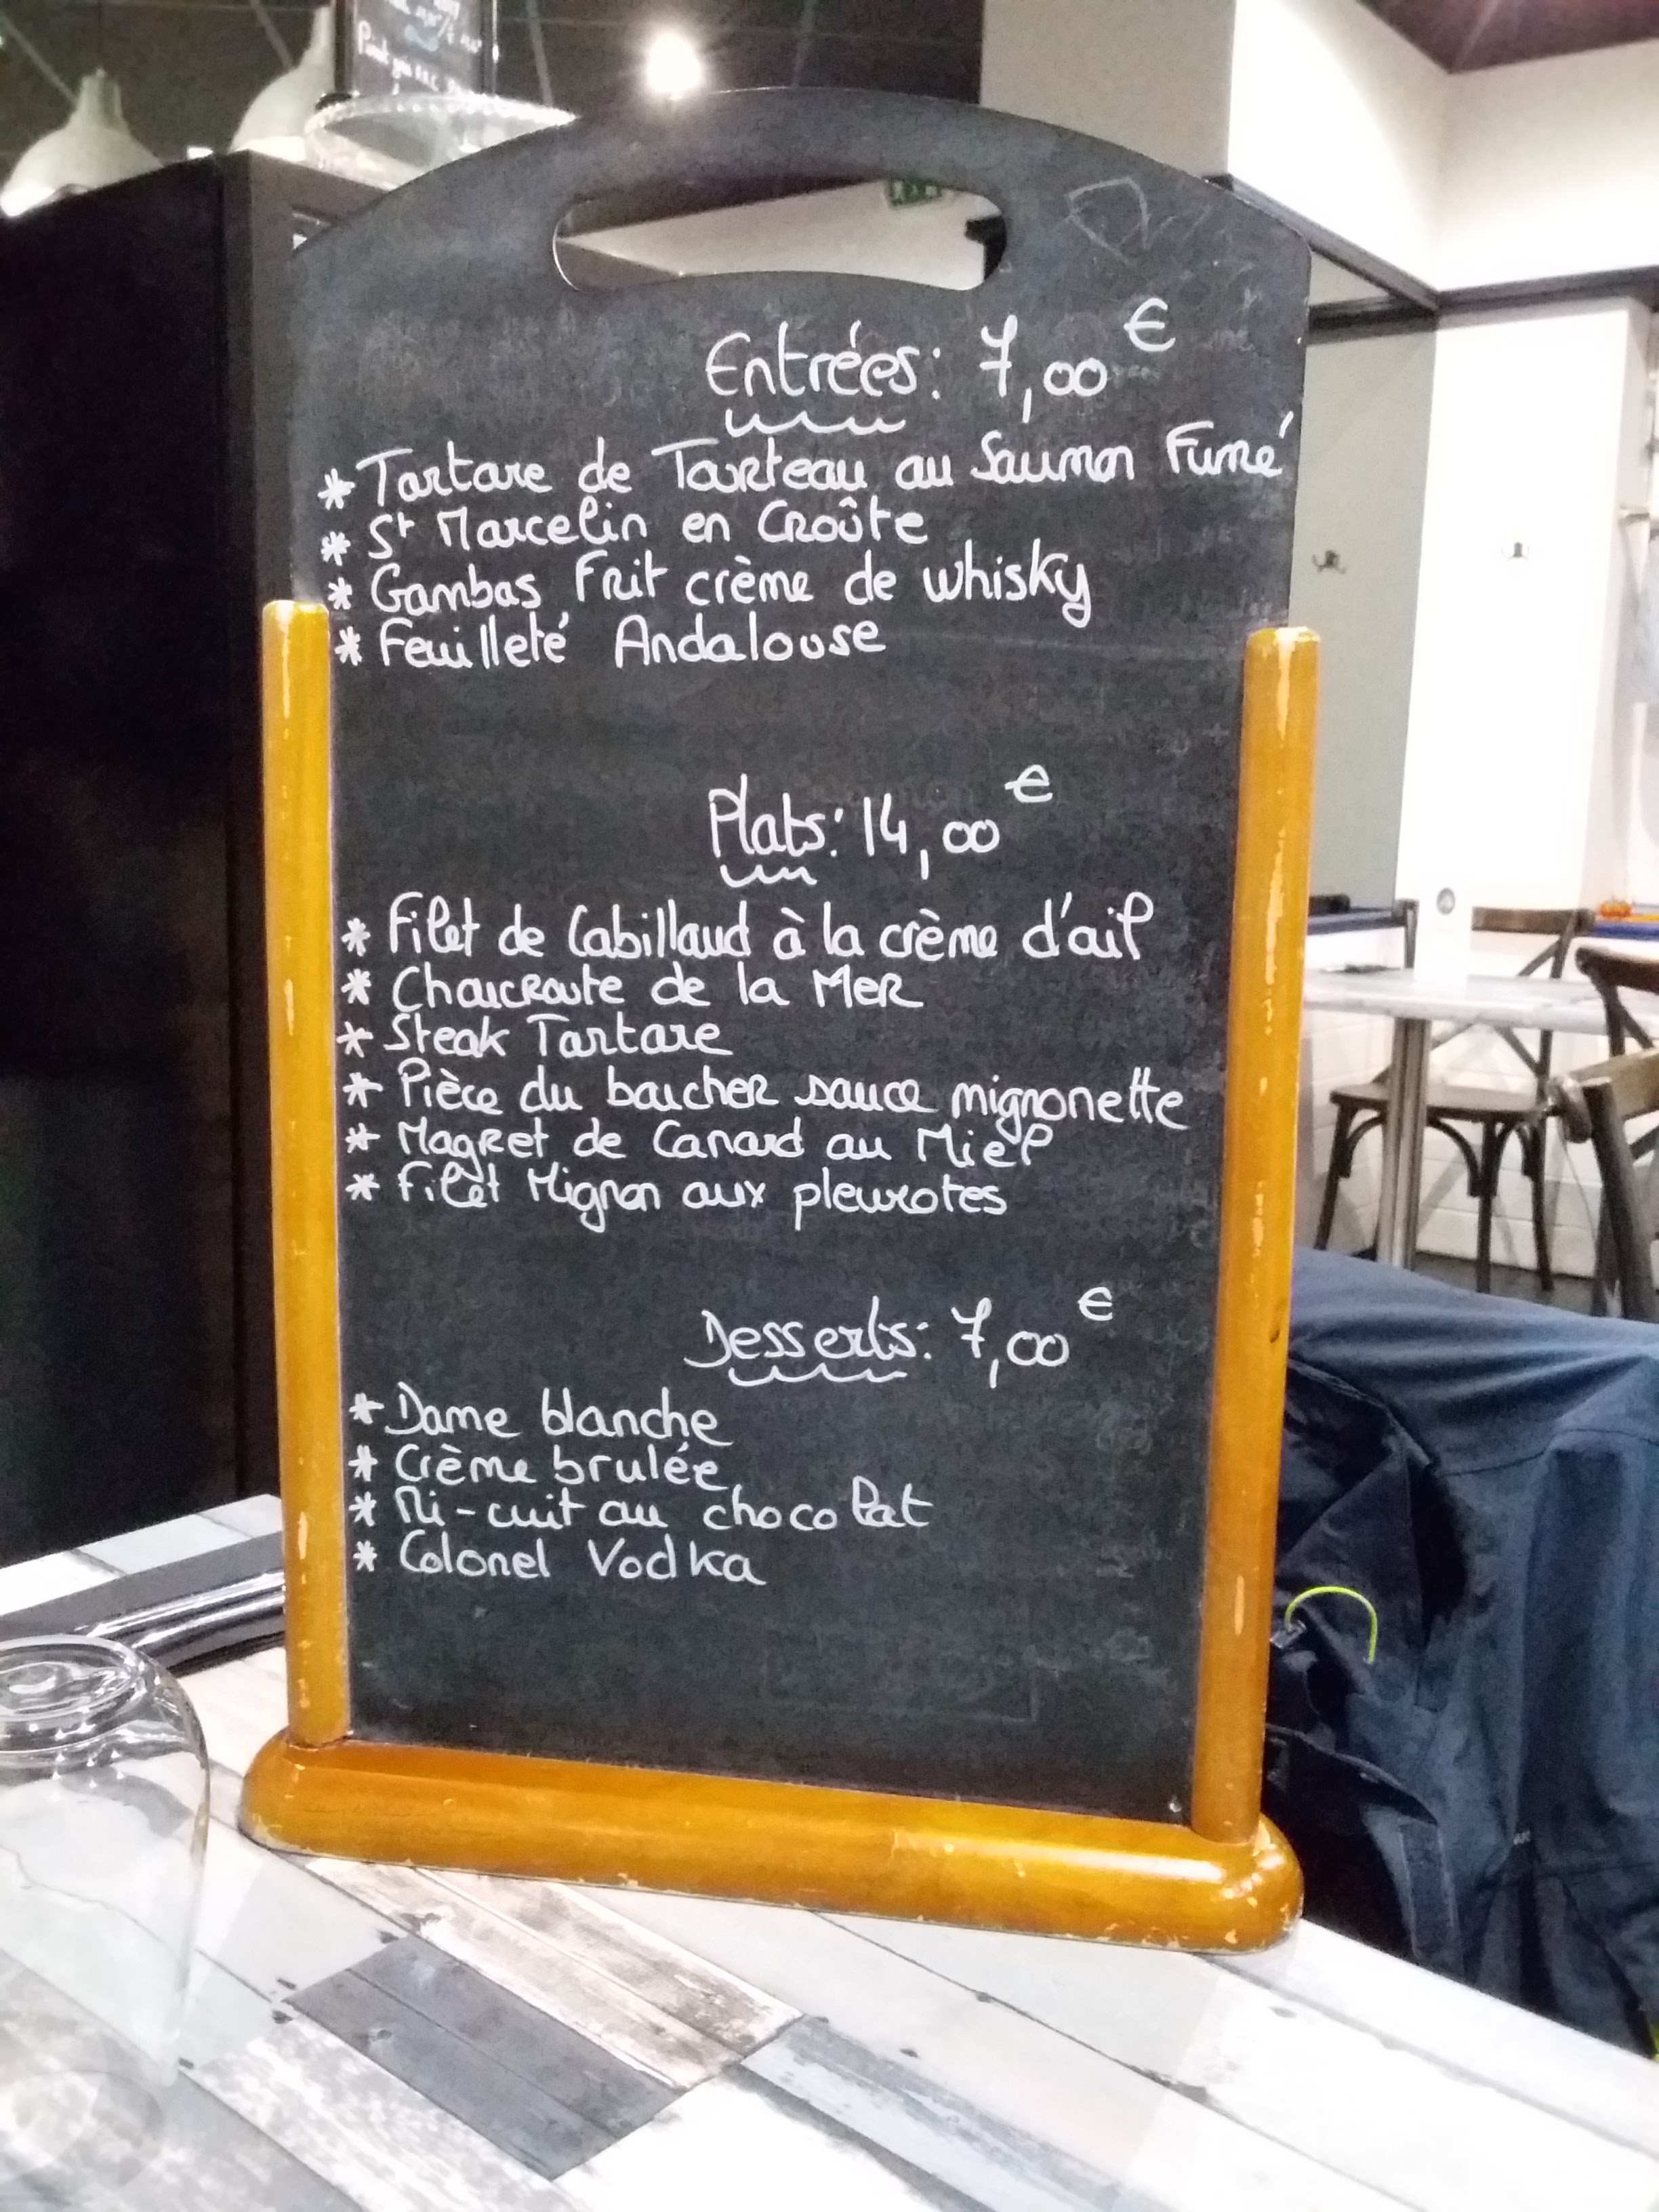 Entrées: 7,00€
* Tartare de Tourteau au Saumon Fumé
* St Marcelin en Croûte
* Gambas Frit crème de whisky
* Feuilleté Andalouse
Plats: 14,00€
* Filet de Cabillaud à la crème d'ail
* Choucroute de la Mer
* Steak Tartare
* Pièce du boucher sauce mignonette
* Magret de Canard au Miel
* Filet Mignon aux pleurotes
Desserts: 7,00€
* Dame blanche
* Crème brulée
* Mi-cuit au chocolat
* Colonel Vodka